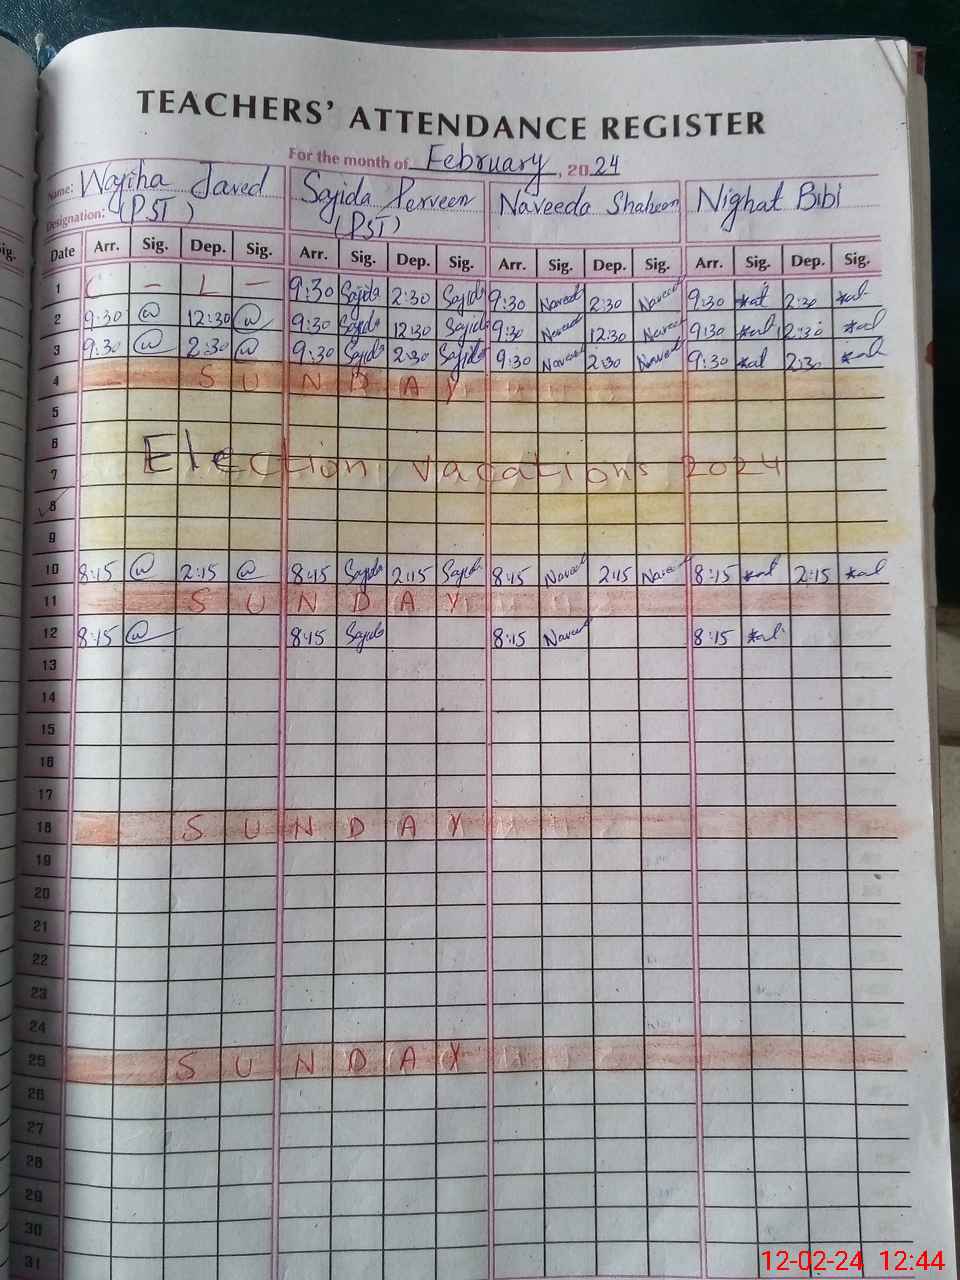 TEACHERS' ATTENDANCE REGISTER
For the month of February, 2024
Name: Wajiha Javed Sajida Perveen Naveeda Shaheen Nighat Bibi
Designation: (PST) (PST)
Date Arr. Sig. Dep. Sig. Arr. Sig. Dep. Sig. Arr. Sig. Dep. Sig. Arr. Sig. Dep. Sig.
1 C - L - 9:30 Sajida 2:30 Sajida 9:30 Naveed 2:30 Naveed 9:30 2:30
2 9:30 @ 12:30 @ 9:30 Sajida 12:30 Sajida 9:30 Naveed 12:30 Naveed 9:30 12:30
3 9:30 @ 2:30 @ 9:30 Sajida 2:30 Sajida 9:30 Naveed 2:30 Naveed 9:30 2:30
4 S U N D A Y
5
6
7 Election vacations 2024
8
9
10 8:15 @ 2:15 @ 8:15 Sajida 2:15 Sajida 8:15 Naveed 2:15 Naveed 8:15 2:15
11 S U N D A Y
12 8:15 @ 8:15 Sajida 8:15 Naveed 8:15
13
14
15
16
17
18 S U N D A Y
19
20
21
22
23
24
25 S U N D A Y
26
27
28
29
30
31
12-02-24 12:44